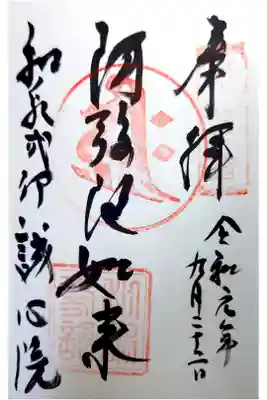 奉拝
令和元年
九月二十二日
阿弥陀如来
和泉式部
誠心院